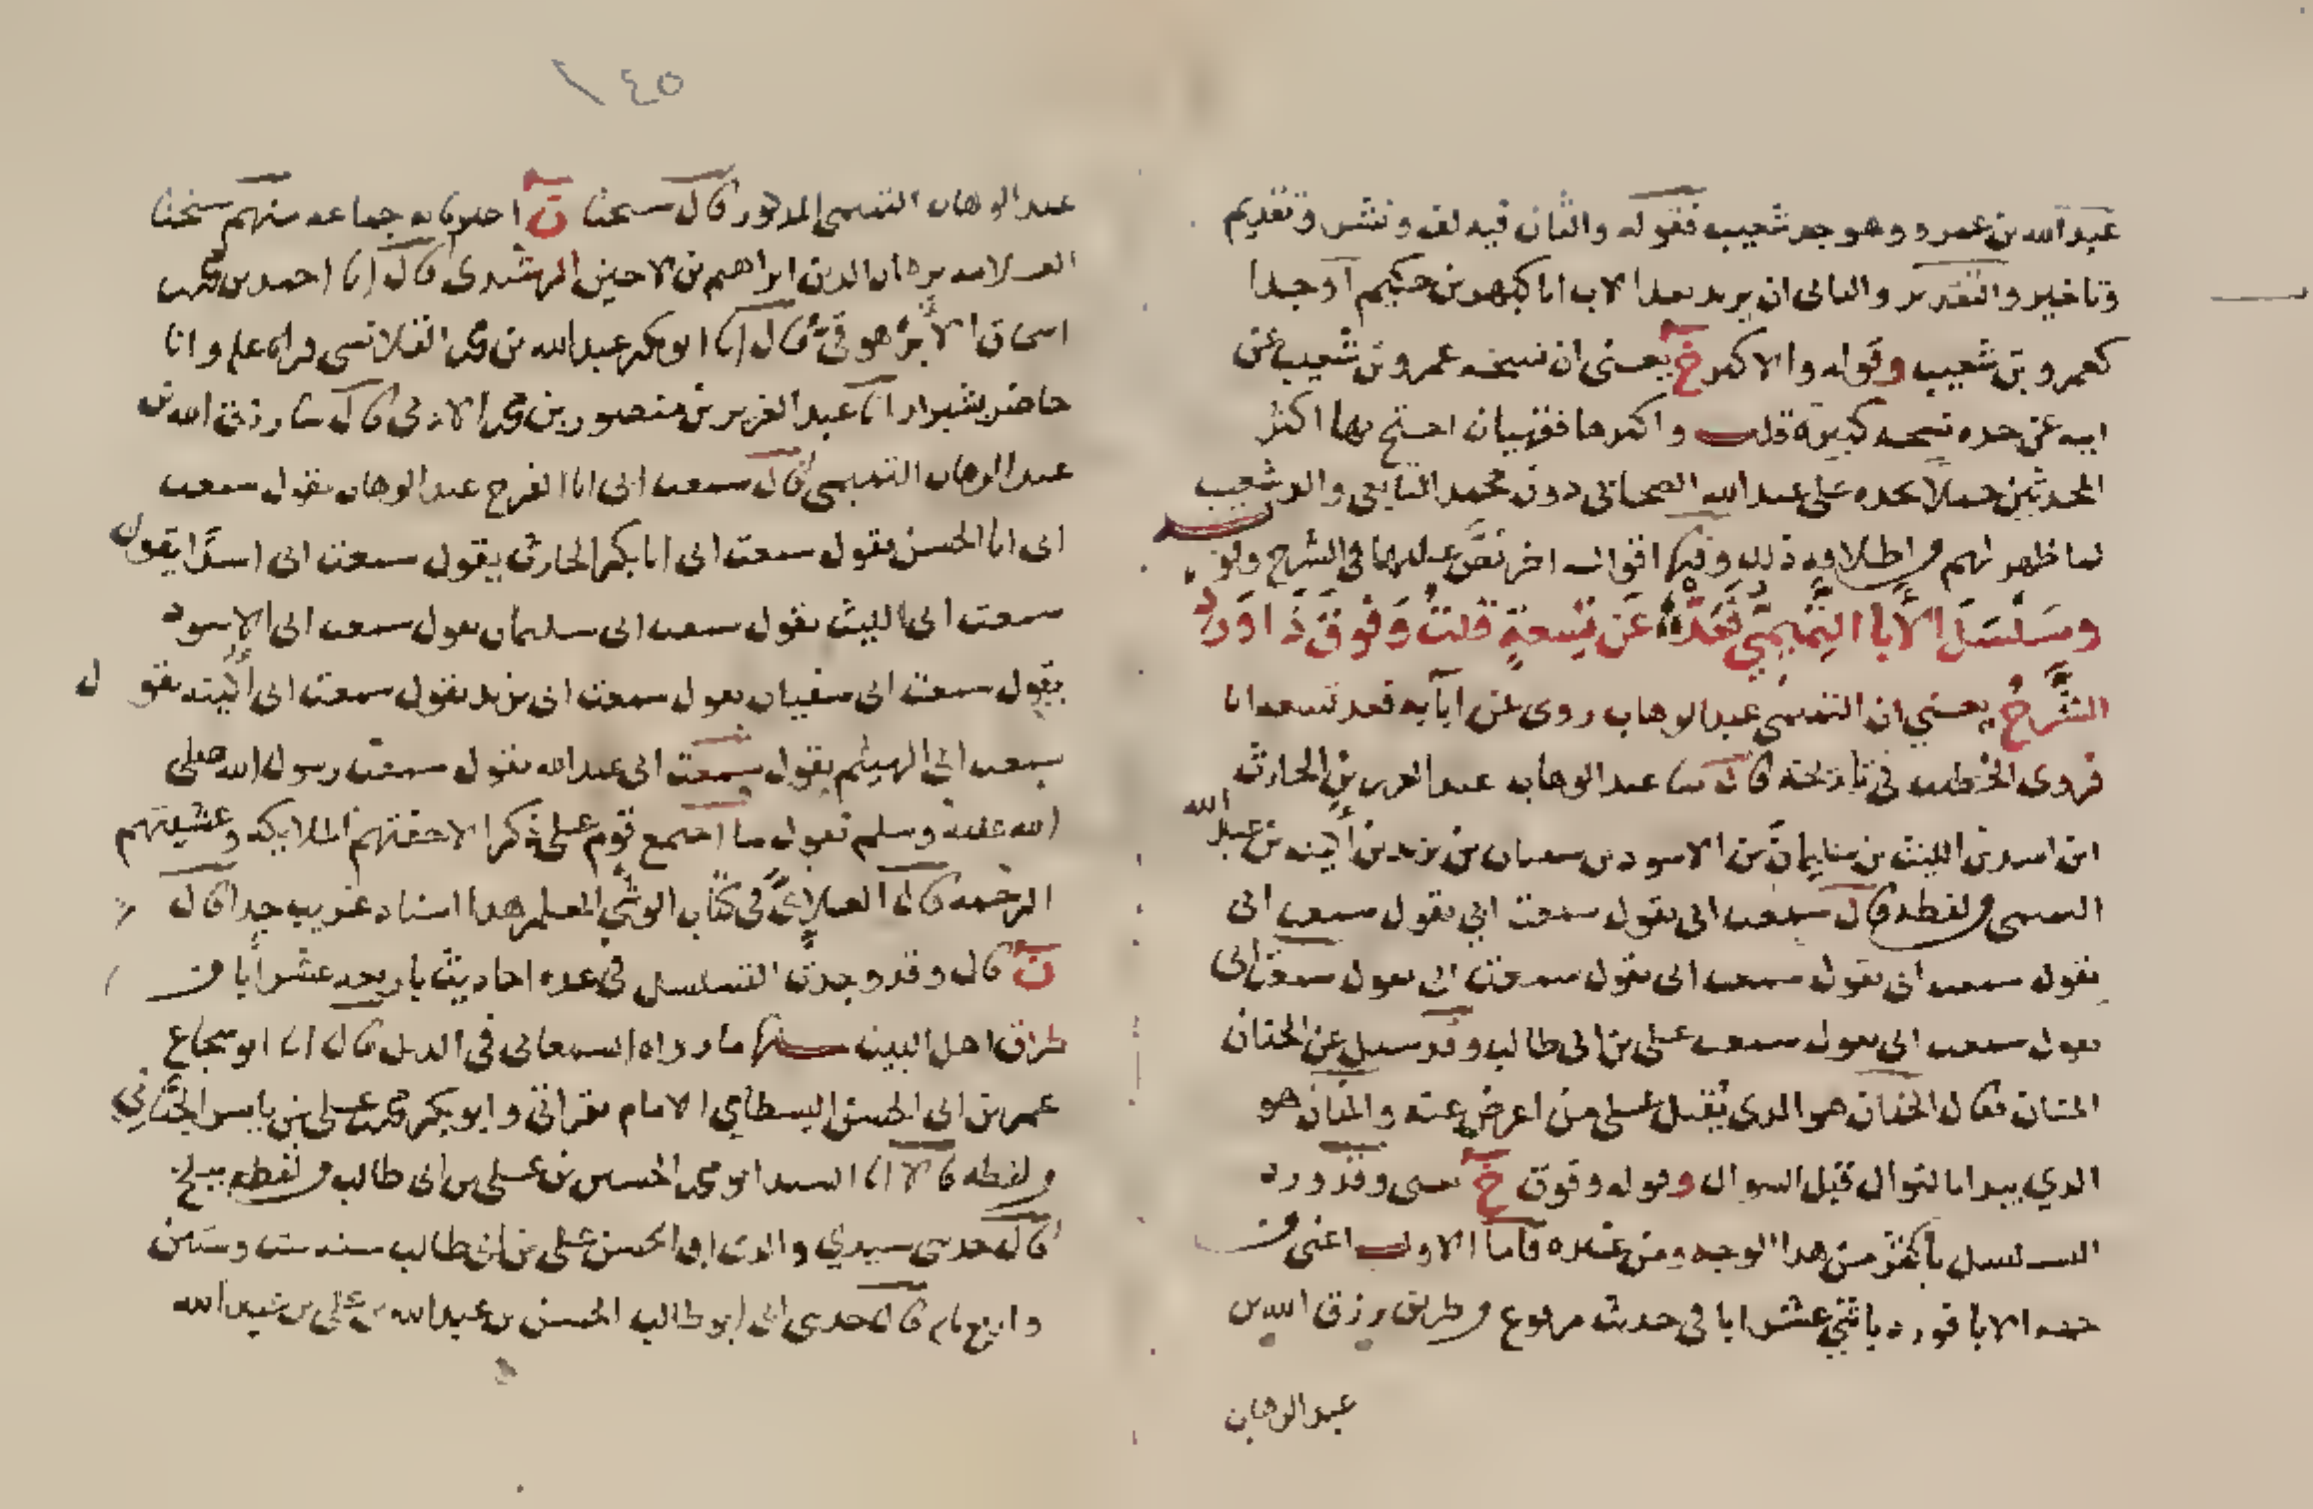 عبد الله بن عمرو وهو جد شعيب فقوله والثان فيه لف ونشر وتقديم
وتاخير والتقدير والثاني ان يريد بعد الاب ابا كبهز بن حكيم او جدا
كعمرو بن شعيب وقوله والاكثر خ يعني ان نسخه عمرو بن شعيب عن
ابيه عن جده نسخه كبيرة قلت واكثرها فقهيات احتج بها اكثر
المحدثين حملا لجده على عبد الله الصحابي دون محمد التابعي والد شعيب
لما ظهر لهم من اطلاقه ذلك وفيها اقوال اخر نص عليها في الشرح وقو
وسلسل الابا التميمي فعد عن تسعة قلت وفوق ذا ورد
الشرح يعني ان التميمي عبد الوهاب روى عن ابايه فعد تسعه ابا
فروى الخطيب في تاريخه قال ثنا عبد الوهاب بن عبد العزيز بن الحارث
ابن اسد بن الليث بن سليمان بن الاسود بن سفيان بن يزيد بن اكينه بن عبد الله
التميمي من لفظه قال سمعت ابي يقول سمعت ابي يقول سمعت ابي
يقول سمعت ابي يقول سمعت ابي يقول سمعت ابي يقول سمعت ابي
يقول سمعت ابي يقول سمعت علي بن ابي طالب وقد سيل عن الحنان
المنان فقال الحنان هو الذي يقبل على من اعرض عنه والمنان هو
الذي يبدا بالنوال قبل السوال وقوله وفوق خ يعني وقد ورد
التسلسل باكثر من هذا الوجه ومن عنده فاما الاول اعني من
جهه الابا فورد باثني عشر ابا في حديث مرفوع من طريق رزق الله بن
عبد الوهاب
١٤٥
عبد الوهاب التميمي المذكور قال شيخنا ن اخبرنا به جماعه منهم شيخنا
العلامه برهان الدين ابراهيم بن لاجين الرشيدي قال انا احمد بن محمد بن
اسحاق الابرقوهي قال انا ابو بكر عبد الله بن محمد القلانسي قراه عليه وانا
حاضر بشيراز انا عبد العزيز بن منصور بن محمد الادمي قال ثنا رزق الله بن
عبد الوهاب التميمي قال سمعت ابي ابا الفرج عبد الوهاب يقول سمعت
ابي ابا الحسن يقول سمعت ابي ابا بكر الحارث يقول سمعت ابي اسدا يقول
سمعت ابي الليث يقول سمعت ابي سليمان يقول سمعت ابي الاسود
يقول سمعت ابي سفيان يقول سمعت ابي يزيد يقول سمعت ابي اكينه يقول
سمعت ابي الهيثم يقول سمعت ابي عبد الله يقول سمعت رسول الله صلى
الله عليه وسلم يقول ما اجتمع قوم على ذكر الا حفتهم الملايكه وغشيتهم
الرحمه قال العلاي في كتاب الوشي المعلم هذا اسناد غريب جدا قال
ن قال وقد وجدت التسلسل في عده احاديث باربعه عشر ابا من
طرق اهل البيت منها ما رواه السمعاني في الذيل قال انا ابو شجاع
عمر بن ابي الحسن البسطامي الامام بقراتي وابو بكر محمد بن علي بن ياسر الجياني
من لفظه قالا انا السيد ابو محمد الحسين بن علي بن ابي طالب من لفظه ببلخ
قال حدثني سيدي والدي ابو الحسن علي بن ابي طالب سنه ست وستين
واربع مايه قال حدثني ابي ابو طالب الحسن بن عبيد الله بن علي بن عبيد الله